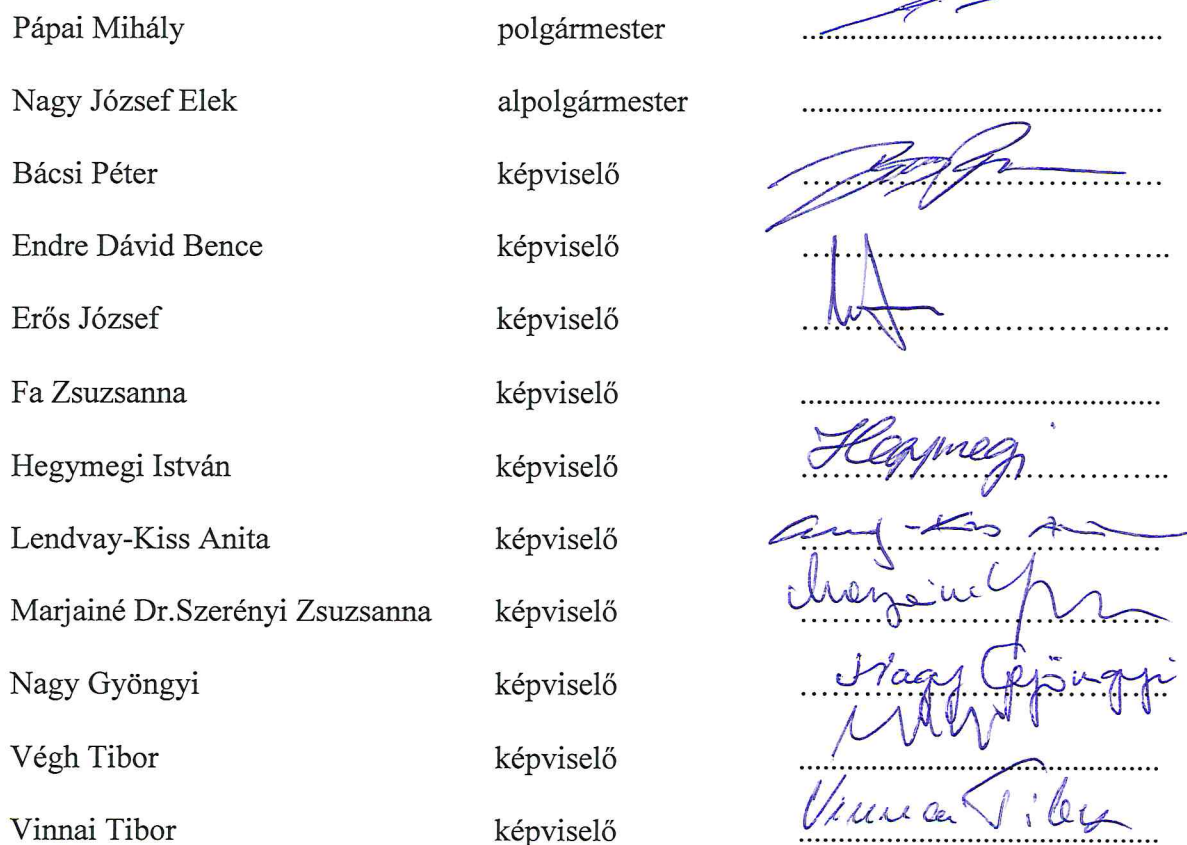 Pápai Mihály polgármester ........................................
Nagy József Elek alpolgármester ........................................
Bácsi Péter képviselő ........................................
Endre Dávid Bence képviselő ........................................
Erős József képviselő ........................................
Fa Zsuzsanna képviselő ........................................
Hegymegi István képviselő Hegymegi
Lendvay-Kiss Anita képviselő -Kiss
Marjainé Dr.Szerényi Zsuzsanna képviselő Marjainé
Nagy Gyöngyi képviselő Nagy Gyöngyi
Végh Tibor képviselő ........................................
Vinnai Tibor képviselő Vinnai Tibor